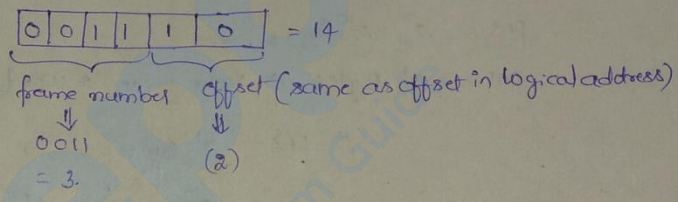 0 0 1 1 1 0 = 14
frame number offset (same as offset in logical address)
⇓ ⇓
0011 (2)
= 3.